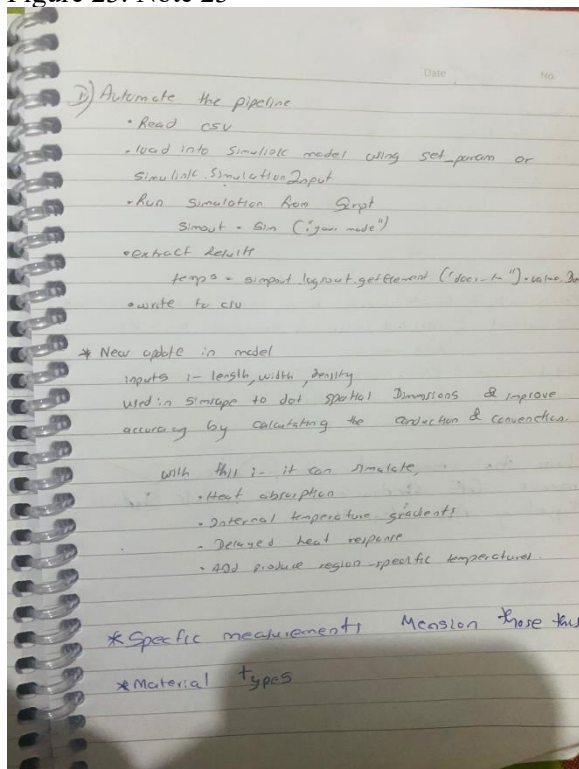 Figure 25: Note 25
Date No.
D) Automate the pipeline
• Read csv
• load into Simulink model using set_param or
Simulink.SimulationInput
• Run Simulation from Script
Simout = Sim ("your mode")
• extract results
temps = simout.logsout.getElement
• write to csv
* New update in model
inputs :- length, width, density
used in simscape to dot spatial Dimensions & improve
accuracy by calculating the conduction & convenction.
with this :- it can simulate,
• Heat absorption
• Internal temperature gradents
• Delayed heat response
• And produce region-specific temperatures.
* Specfic measurements Mension those
* Material types